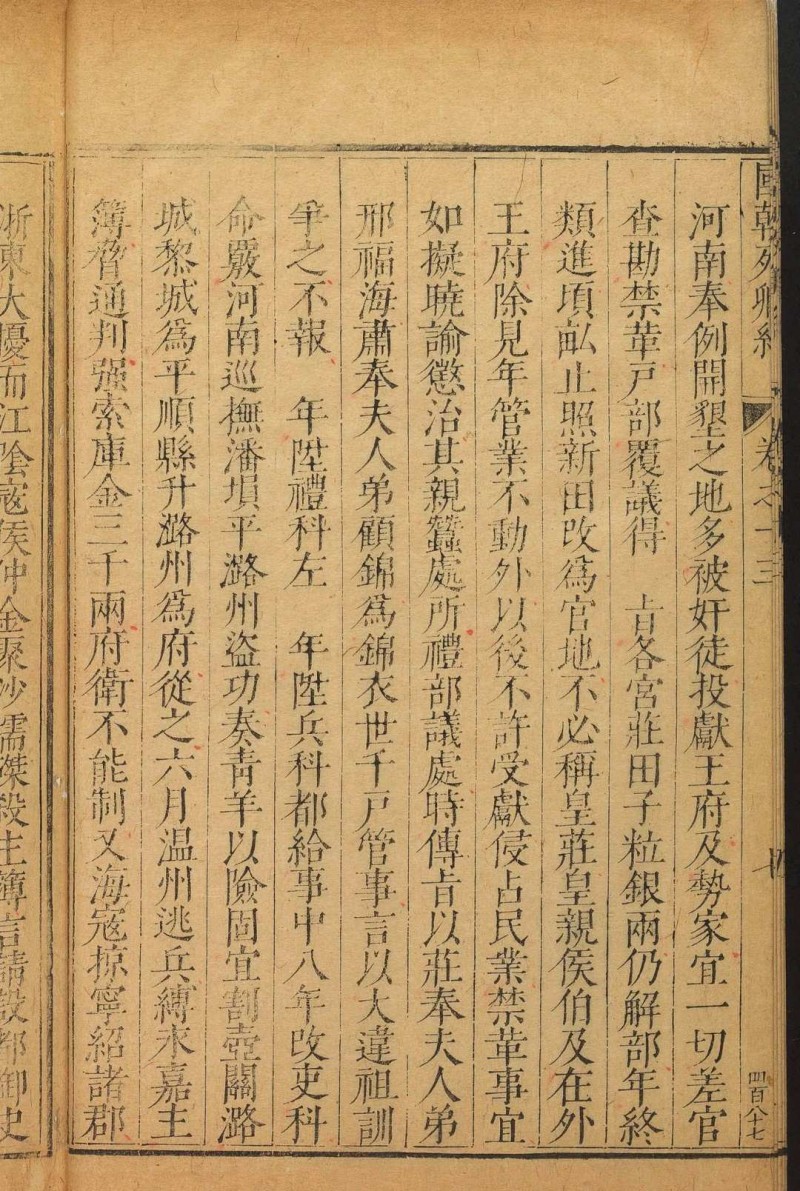 國朝列卿紀
卷之十三
四百八十七
河南奉例開墾之地多被奸徒投獻王府及勢家宜一切差官
查勘禁革戸部覆議得　旨各宮莊田子粒銀兩仍解部年終
類進頃畝止照新田改爲官地不必稱皇莊皇親侯伯及在外
王府除見年管業不動外以後不許受獻侵占民業禁革事宜
如擬曉諭懲治其親蠶處所禮部議處時傳旨以莊奉夫人弟
邢福海肅奉夫人弟顧錦爲錦衣世千戸管事言以大違祖訓
爭之不報　年陞禮科左　年陞兵科都給事中八年改吏科
命嚴河南巡撫潘塤平潞州盜功奏靑羊以險固宜割壺關潞
城黎城爲平順縣升潞州爲府從之六月温州逃兵縛永嘉主
簿脅通判强索庫金三千兩府衛不能制又海寇掠寧紹諸郡
浙東大擾而江陰寇侯仲金聚沙孺桀殺主簿言請設都御史